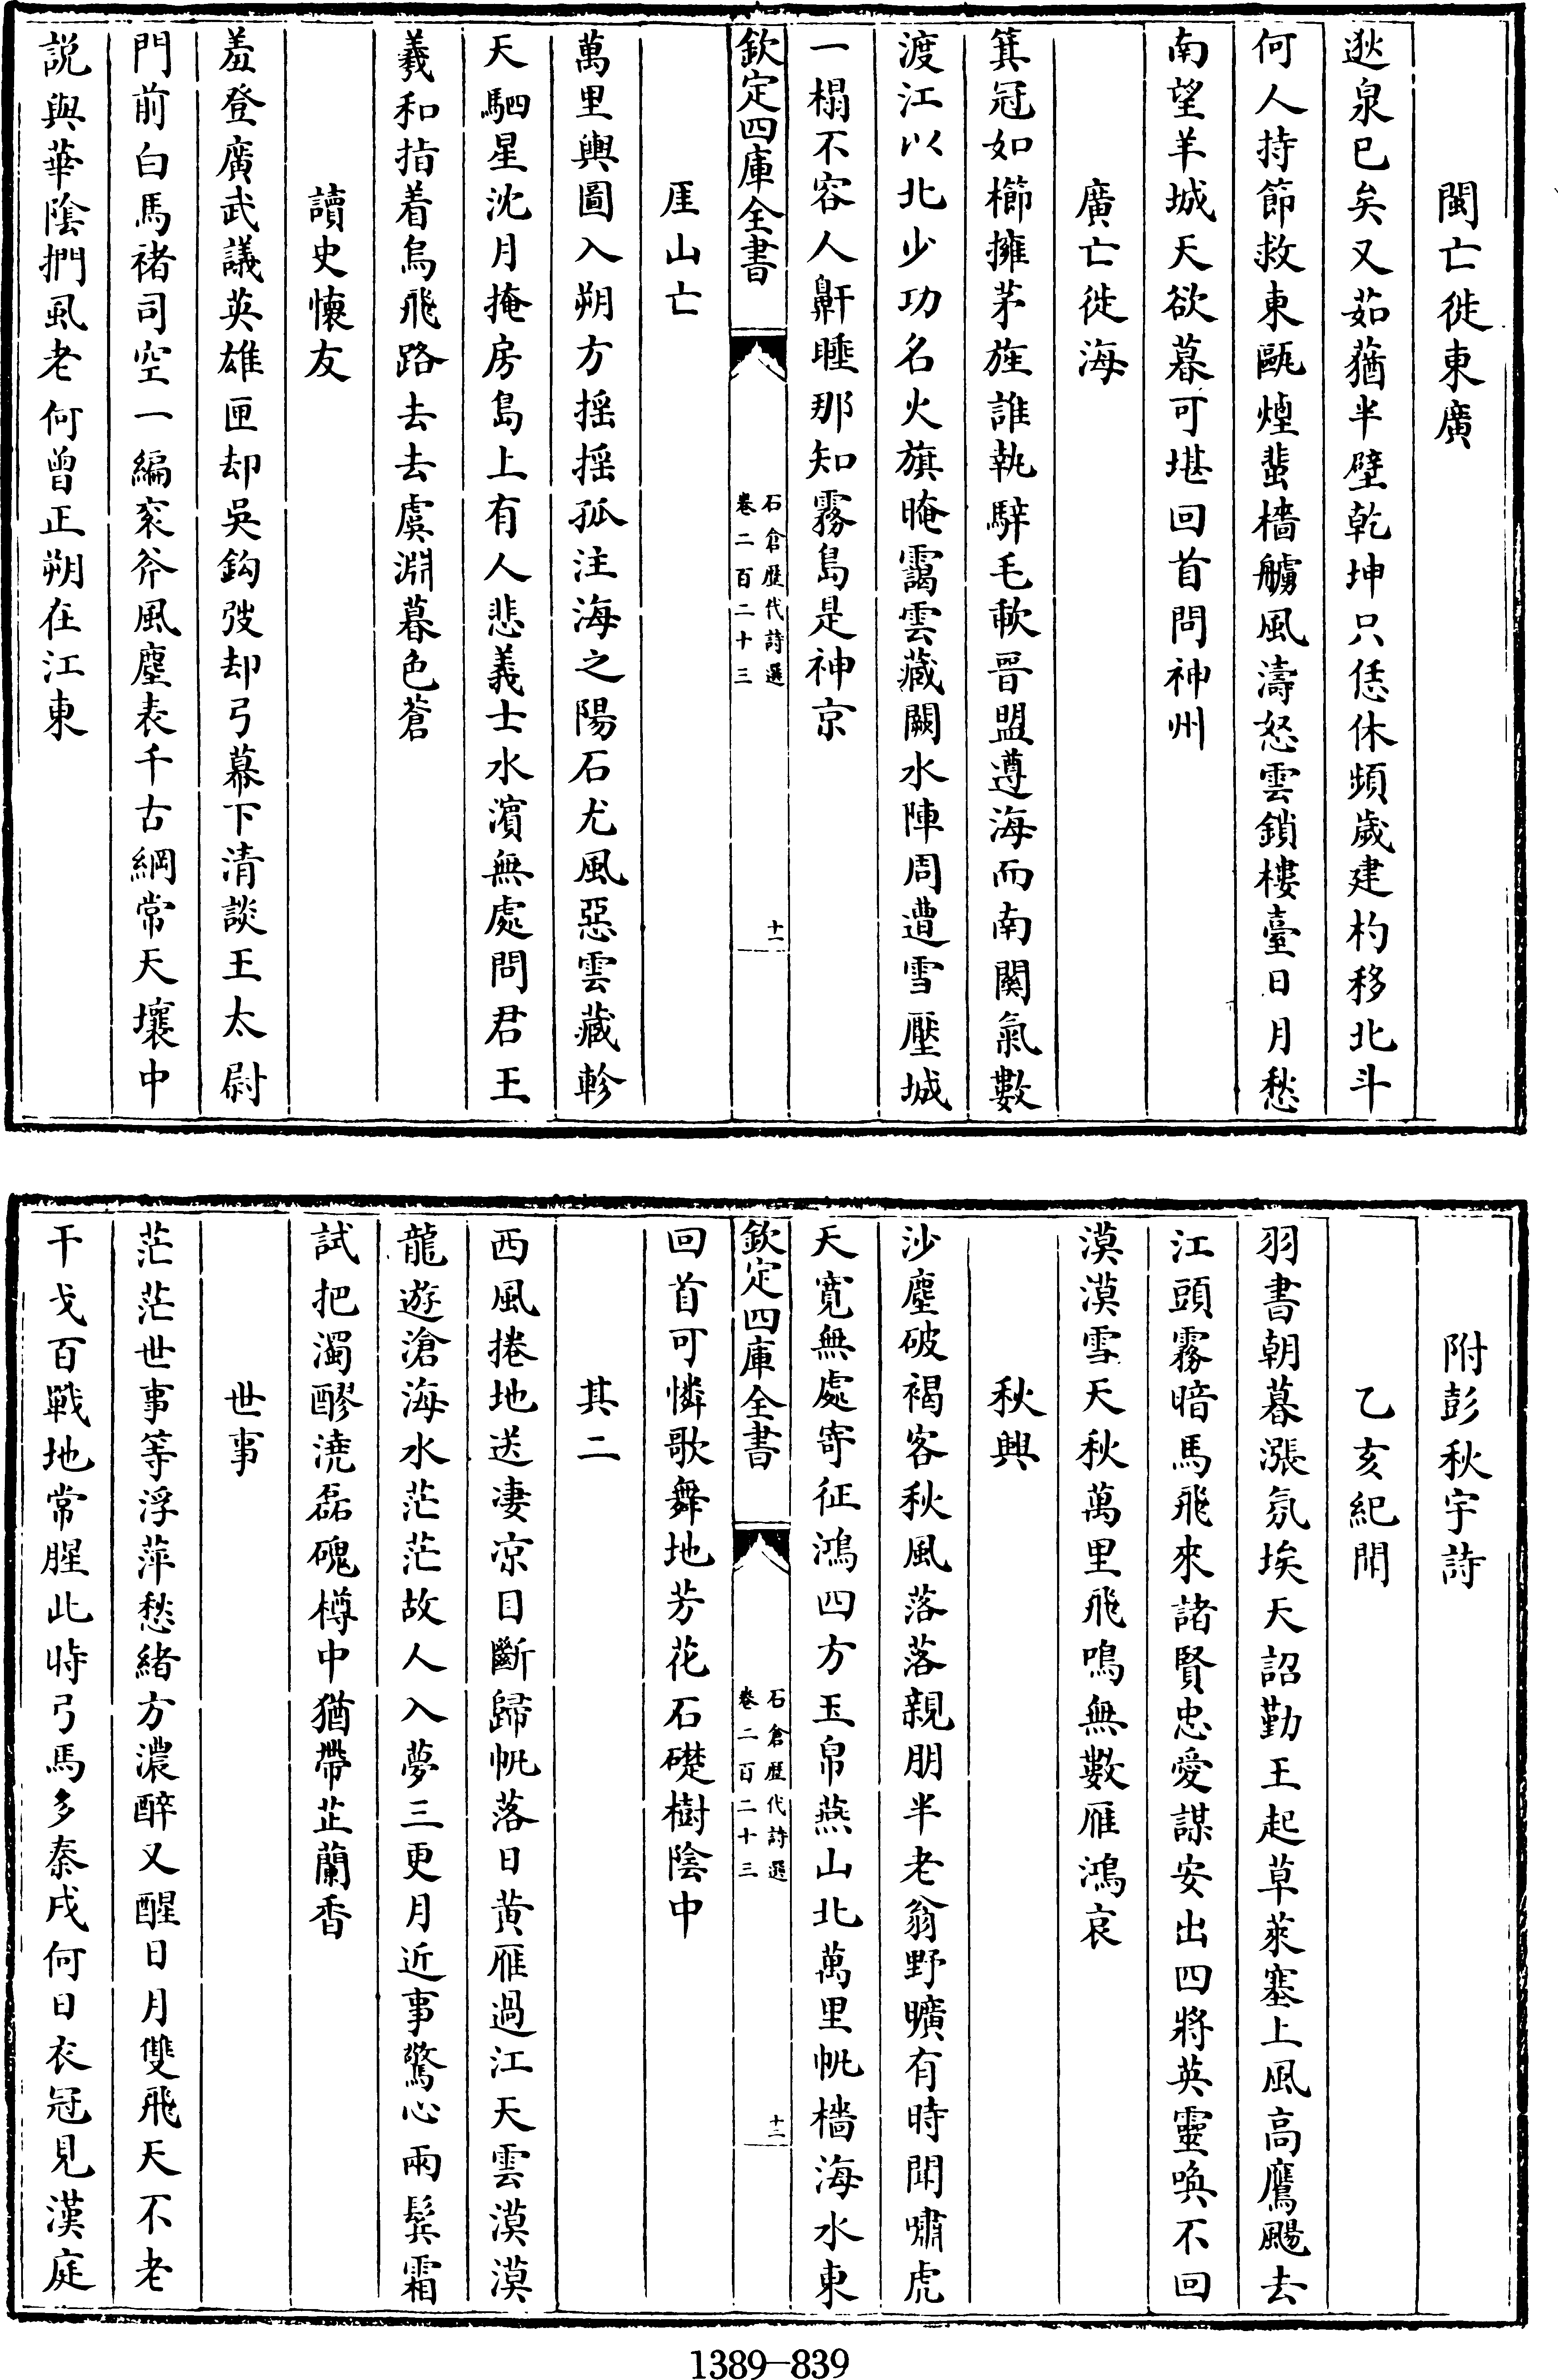 閩亡徙東廣
逖泉已矣又茹蕕半壁乾坤只恁休頻歲建杓移北斗
何人持節救東甌煙蜚檣艣風濤怒雲鎖樓臺日月愁
南望羊城天欲暮可堪回首問神州
廣亡徙海
箕冠如櫛擁茅旌誰執騂毛軟晉盟遵海而南關氣數
渡江以北少功名火旗晻靄雲藏闕水陣周遭雪壓城
一榻不容人鼾睡那知霧島是神京
欽定四庫全書
石倉歷代詩選
卷二百二十三
十一
厓山亡
萬里輿圖入朔方搖搖孤注海之陽石尤風惡雲藏軫
天駟星沈月掩房島上有人悲義士水濱無處問君王
羲和指着烏飛路去去虞淵暮色蒼
讀史懷友
羞登廣武議英雄匣却吳鈎弢却弓幕下清談王太尉
門前白馬禇司空一編衮斧風塵表千古綱常天壤中
説與華陰捫虱老何曾正朔在江東
附彭秋宇詩
乙亥紀聞
羽書朝暮漲氛埃天詔勤王起草萊塞上風高鷹颺去
江頭霧暗馬飛來諸賢忠愛謀安出四將英靈喚不回
漠漠雪天秋萬里飛鳴無數雁鴻哀
秋興
沙塵破褐客秋風落落親朋半老翁野曠有時聞嘯虎
天寬無處寄征鴻四方玉帛燕山北萬里帆檣海水東
欽定四庫全書
石倉歷代詩選
卷二百二十三
十二
回首可憐歌舞地芳花石礎樹陰中
其二
西風捲地送凄凉目斷歸帆落日黄雁過江天雲漠漠
龍遊滄海水茫茫故人入夢三更月近事驚心兩鬂霜
試把濁醪澆磊磈樽中猶帶芷蘭香
世事
茫茫世事等浮萍愁緒方濃醉又醒日月雙飛天不老
干戈百戰地常腥此時弓馬多秦戍何日衣冠見漢庭
1389—839